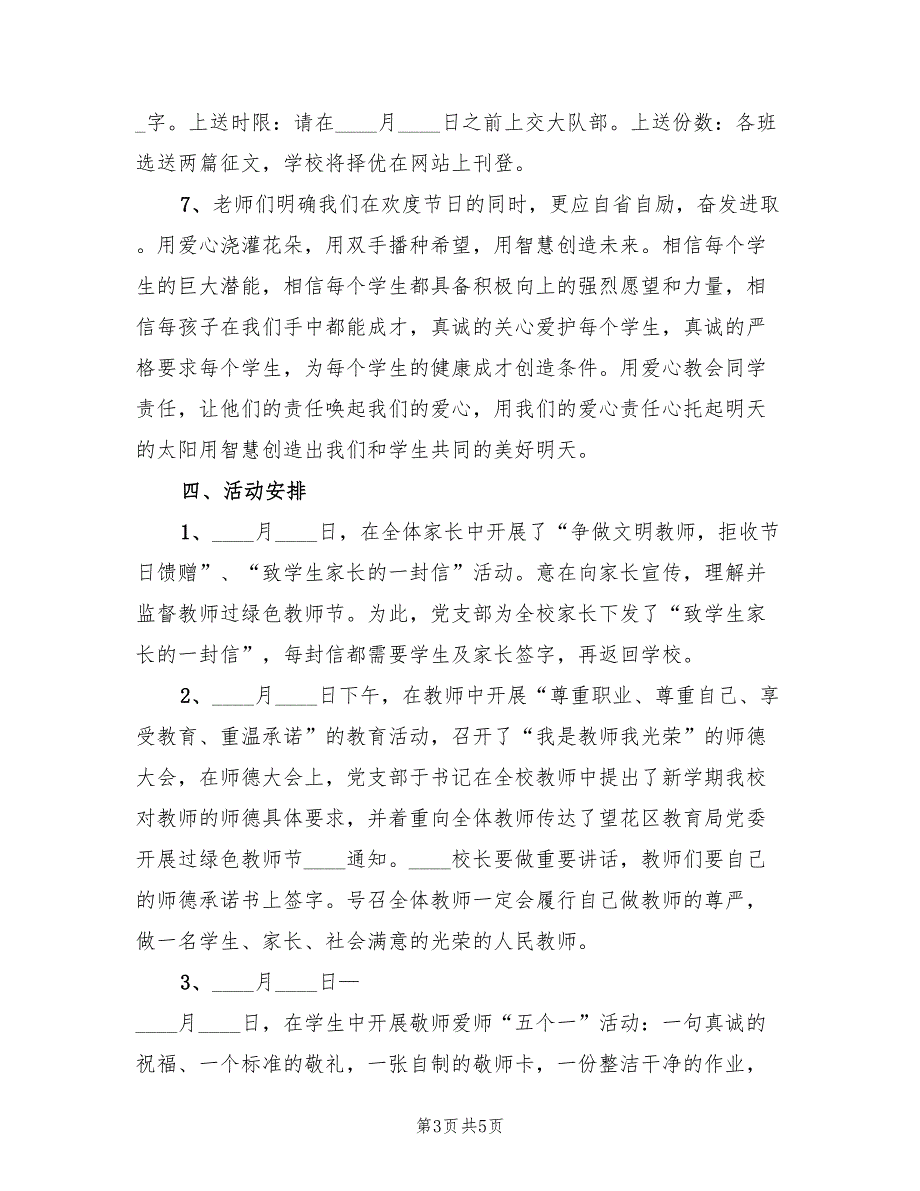 _字。上送时限：请在____月____日之前上交大队部。上送份数：各班
选送两篇征文，学校将择优在网站上刊登。
7、老师们明确我们在欢度节日的同时，更应自省自励，奋发进取
。用爱心浇灌花朵，用双手播种希望，用智慧创造未来。相信每个学
生的巨大潜能，相信每个学生都具备积极向上的强烈愿望和力量，相
信每孩子在我们手中都能成才，真诚的关心爱护每个学生，真诚的严
格要求每个学生，为每个学生的健康成才创造条件。用爱心教会同学
责任，让他们的责任唤起我们的爱心，用我们的爱心责任心托起明天
的太阳用智慧创造出我们和学生共同的美好明天。
四、活动安排
1、____月____日，在全体家长中开展了“争做文明教师，拒收节
日馈赠”、“致学生家长的一封信”活动。意在向家长宣传，理解并
监督教师过绿色教师节。为此，党支部为全校家长下发了“致学生家
长的一封信”，每封信都需要学生及家长签字，再返回学校。
2、____月____日下午，在教师中开展“尊重职业、尊重自己、享
受教育、重温承诺”的教育活动，召开了“我是教师我光荣”的师德
大会，在师德大会上，党支部于书记在全校教师中提出了新学期我校
对教师的师德具体要求，并着重向全体教师传达了望花区教育局党委
开展过绿色教师节____通知。____校长要做重要讲话，教师们要自己
的师德承诺书上签字。号召全体教师一定会履行自己做教师的尊严，
做一名学生、家长、社会满意的光荣的人民教师。
3、____月____日—
____月____日，在学生中开展敬师爱师“五个一”活动：一句真诚的
祝福、一个标准的敬礼，一张自制的敬师卡，一份整洁干净的作业，
第3页 共5页